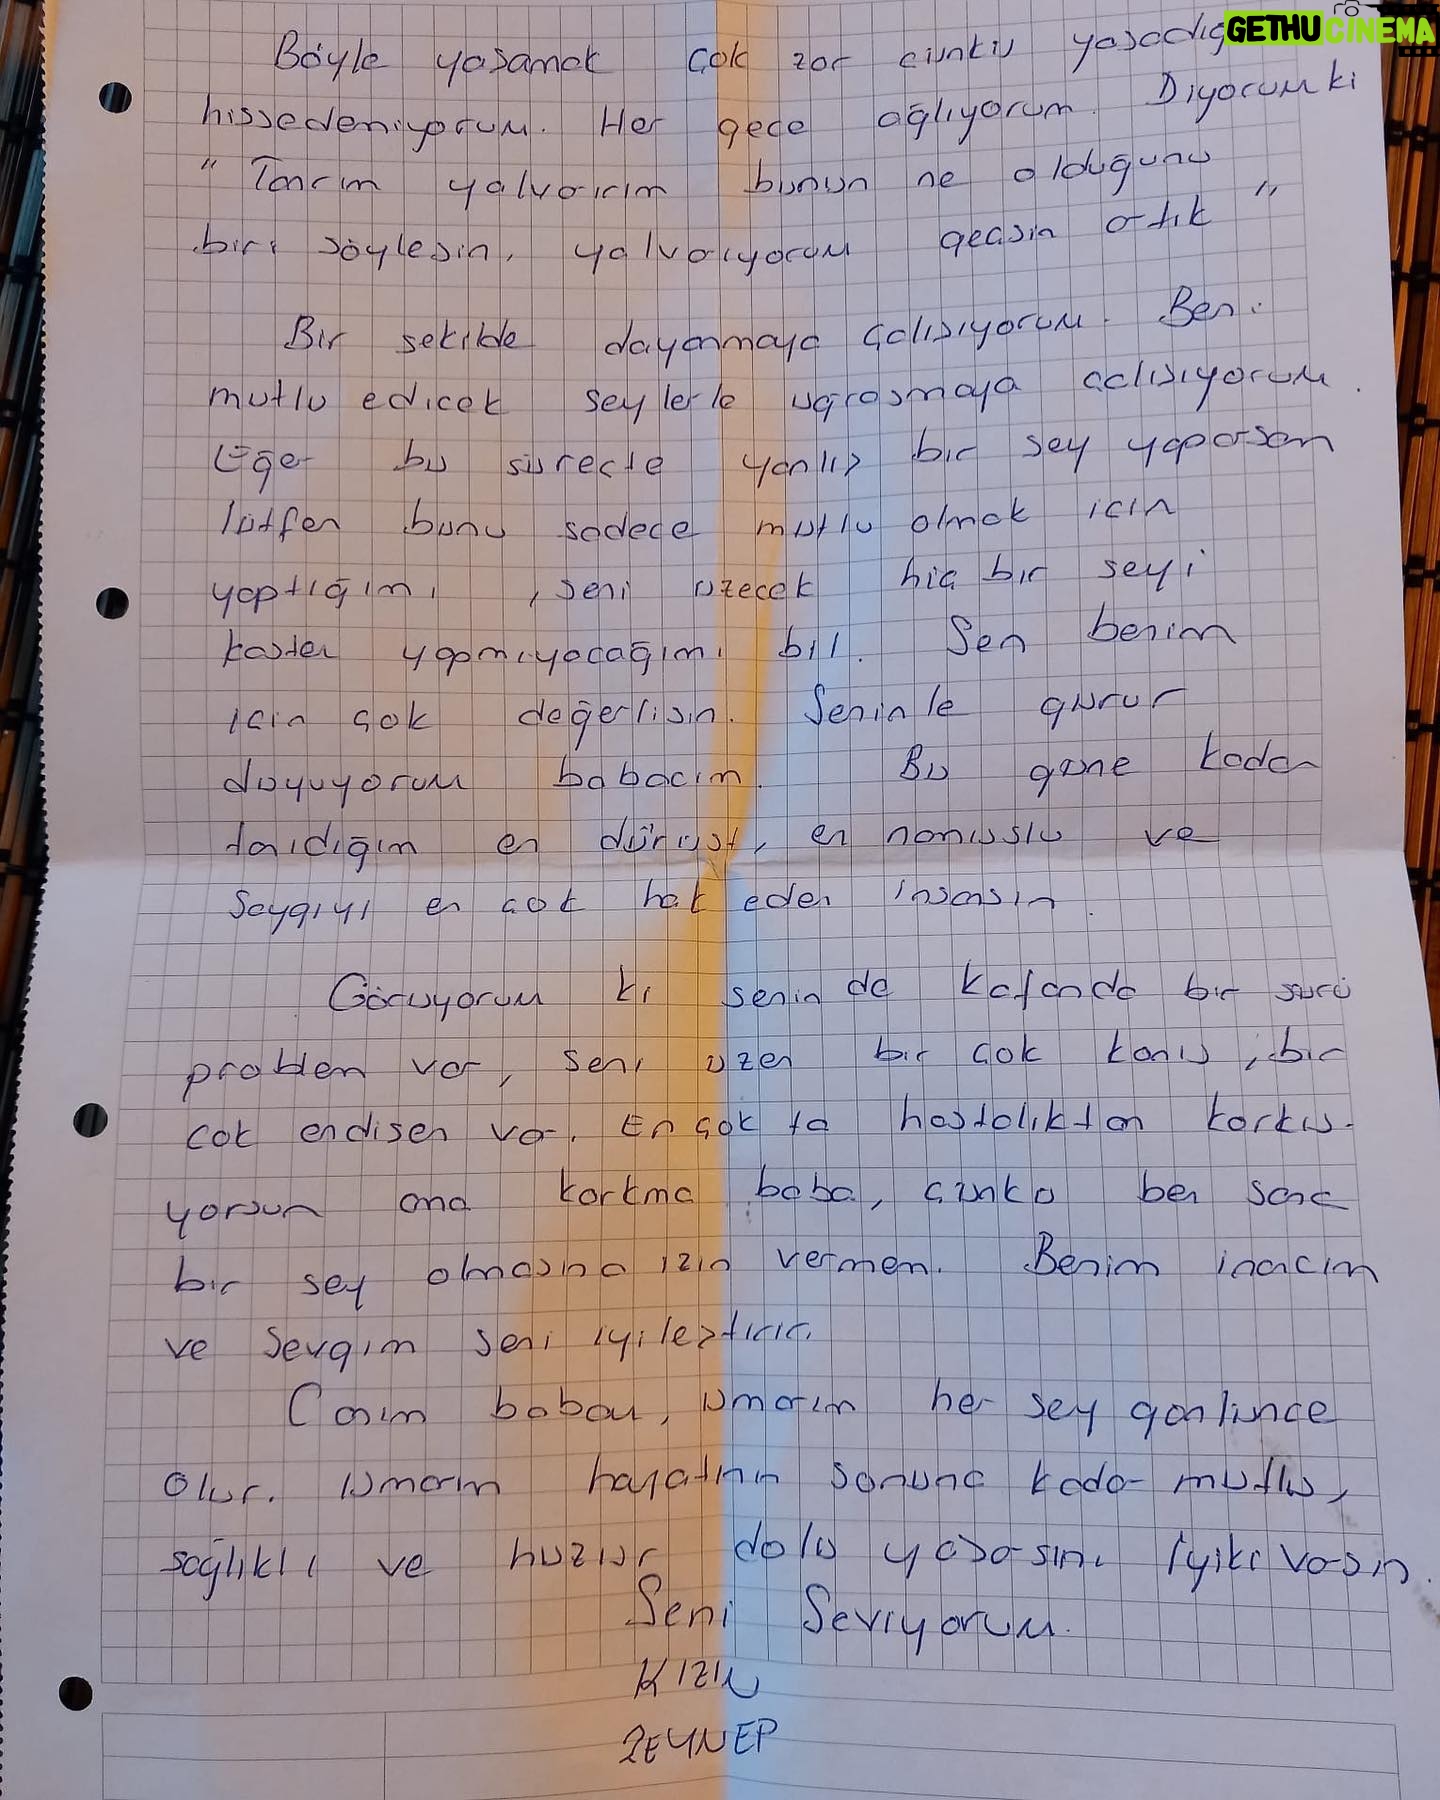 GETHU CINEMA
Böyle yaşamak çok zor çünkü
hissedemiyorum. Her gece ağlıyorum. Diyorumki
" Tanrım yalvarırım bunun ne olduğunu
biri söylesin, yalvarıyorum geçsin artık "
Bir sekilde dayanmaya çalışıyorum. Beni
mutlu edicek seylerle ugrasmaya calışıyorum.
Eğer bu surecte yanlış bir sey yaparsam
lütfen bunu sadece mutlu olmak icin
yaptığımı, seni üzecek hiç bir seyi
kasten yapmıyacağımı bil. Sen benim
icin çok değerlisin. Seninle gurur
duyuyorum babacım. Bu güne kadar
tanıdığım en dürüst, en namuslu ve
Saygıyı en cok hak eden insansın.
Görüyorum ki senin de kafanda bir sürü
problem var, seni üzen bir çok konu, bir
cok endisen var. En çok ta hastalıktan korku-
yorsun ama korkma baba, çünkü ben sana
bir sey olmasına izin vermem. Benim inancım
ve sevgim seni iyileştirir.
Canım babam, umarım her sey gönlünce
olur. Umarım hayatının sonuna kadar mutlu,
sağlıklı ve huzur dolu yaşarsın. İyiki varsın.
Seni Seviyorum.
KIZIN
ZEYNEP